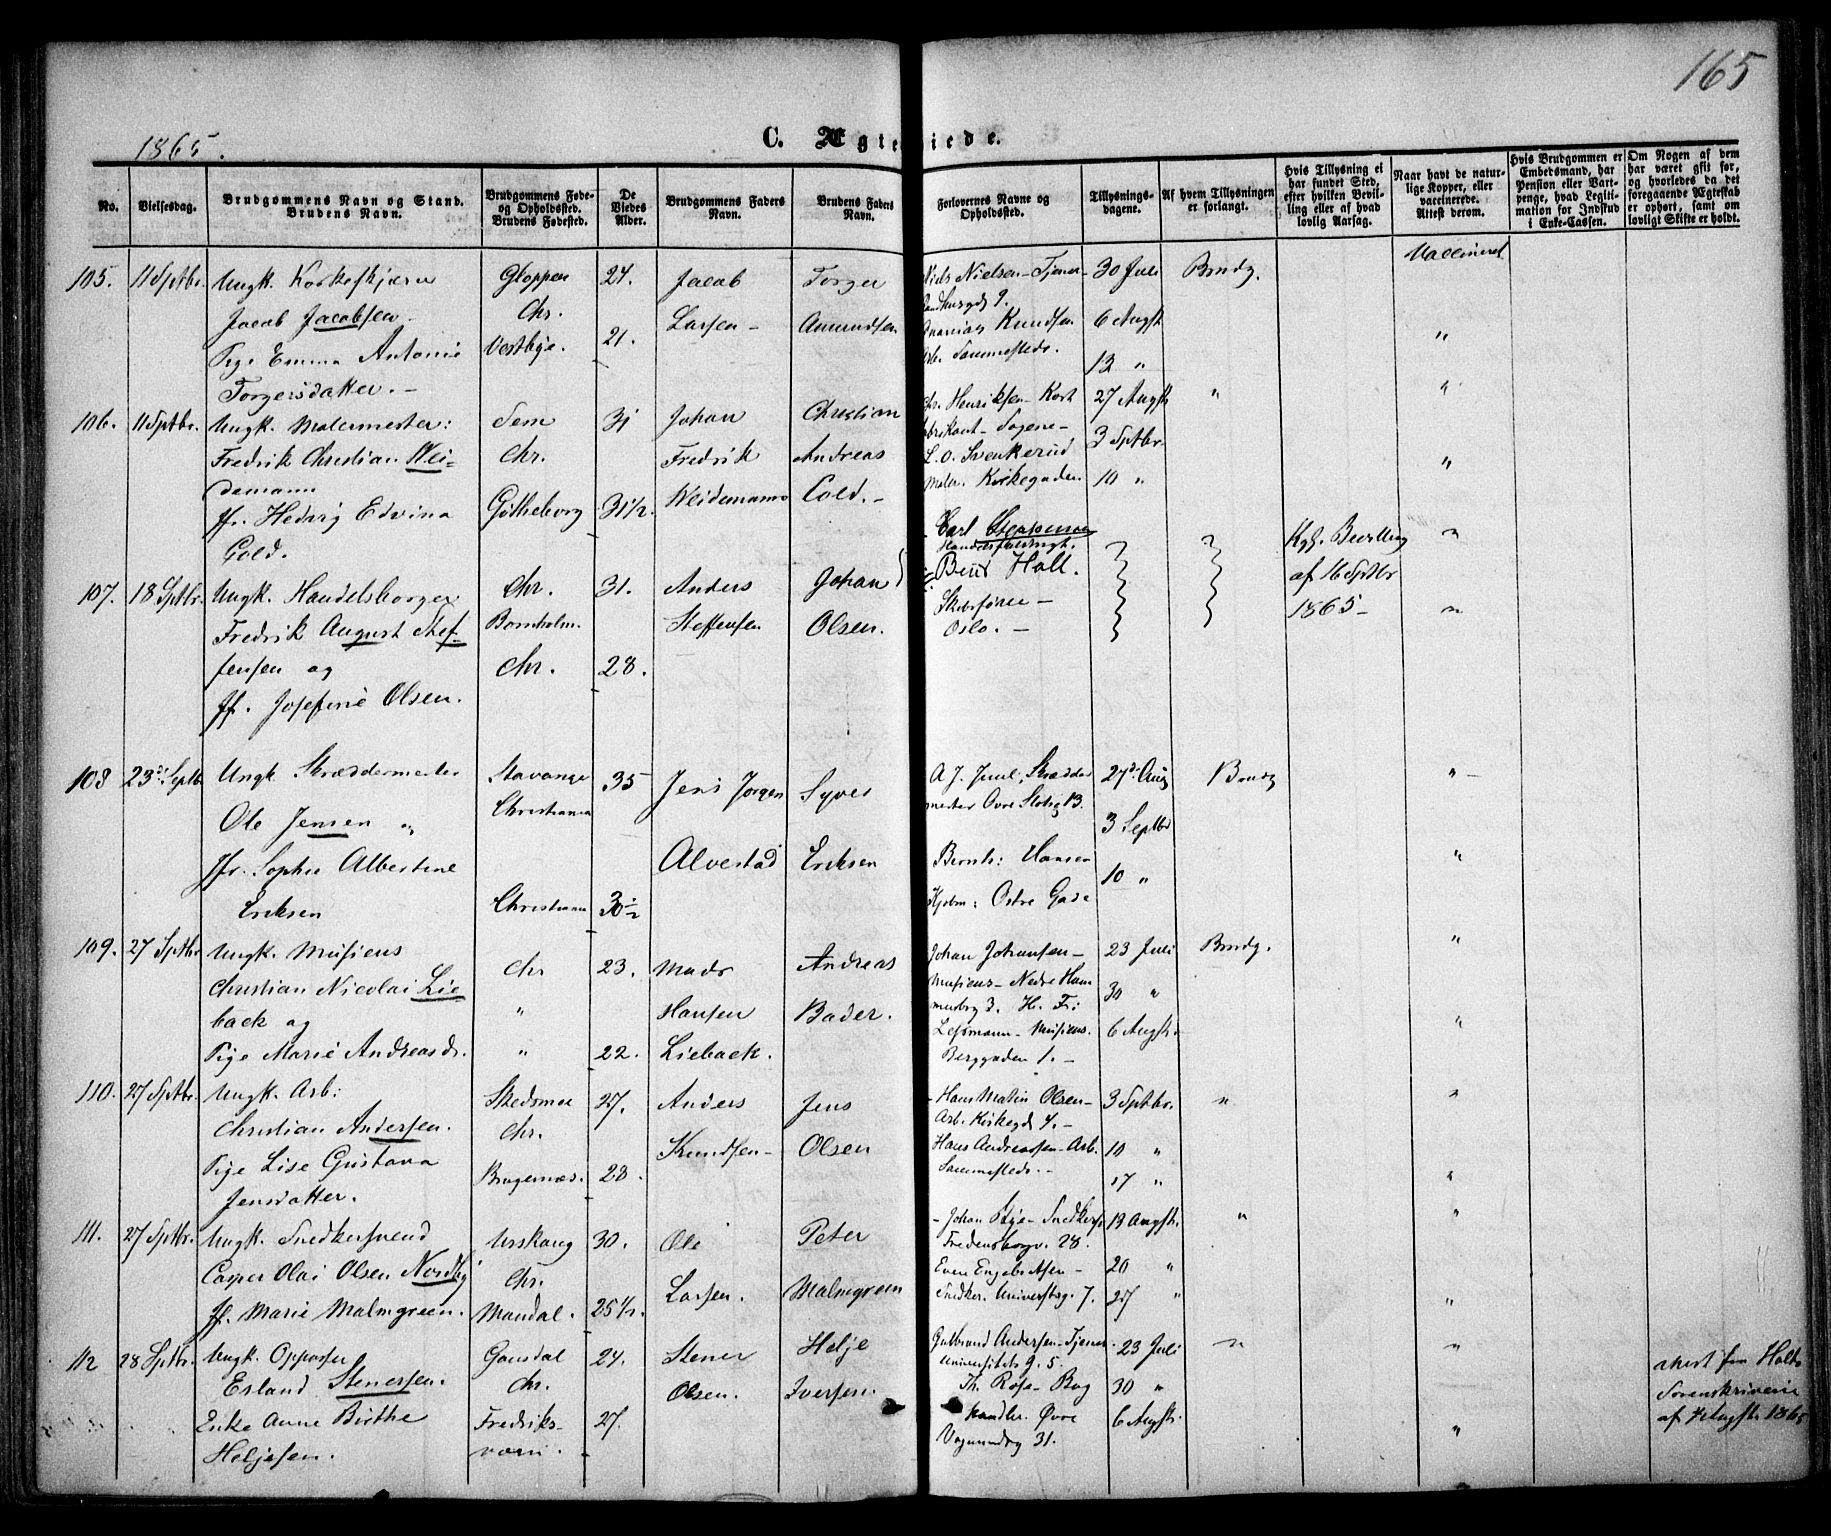 165
1865.
C. Ægteviede.
No.
Vielsesdag.
Brudgommens Navn og Stand.
Brudens Navn.
Brudgommens Føde-
og Opholdssted.
Brudens Fødested.
De
Viedes
Alder.
Brudgommens Faders
Navn.
Brudens Faders
Navn.
Forlovernes Navne og
Opholdssted.
Tillysnings-
dagene.
Af hvem Tillysningen
er forlangt.
Hvis Tillysning ei
har fundet Sted,
efter hvilken Bevil-
ling eller af hvad
lovlig Aarsag.
Naar havt de natur-
lige Kopper, eller
vaccinerede.
Attest derom.
Hvis Brudgommen er
Embedsmand, har
Pension eller Vart-
penge, hvad Legiti-
mation for Indskud
i Enke-Cassen.
Om Nogen af dem
har været gift før,
og hvorledes da det
foregaaende Ægteskab
er ophørt, samt om
lovligt Skifte er holdt.
105. 11 Septbr. Ungk. Korkeskjærer Gloppen 24. Jacob Torger Niels Nielsen - Tjener 30 Juli Brudg. Vaccineret
Jacob Jacobsen Chr. Larsen - Amundsen Knudsen 6 Augst
Pige Emma Antonie Vestbye. 21. Sammesteds. 13 "
Torgersdatter. -
106. 11 Septbr. Ungk. Malermester: Sem 31 Johan Christian Chr. Henriksen - Kort 27 Augst "
Fredrik Christian Wei- Chr. Fredrik Andreas fabrikant - 3 Septbr.
demann L. O. Svenkerud
Jfr. Hedvig Edvina Gøtheborg 31 1/2. Weidemann Cold. - Maler. Kirkegaden 10 "
Cold.
107. 18 Septbr. Ungk. Handelsborger Chr. 31. Anders Johan Carl Handelsfuldmgt. Kgl. Bevilling
Fredrik August Stef- Bornholm. Steffensen Olsen. Bent Holt. af 16 Septbr
fensen og Chr. 28. Oslo. - 1865 -
Jf. Josefine Olsen.
108 23de Septbr Ungk Skræddermester Stavanger 35 Jens Jørgen Syver A J. Juul, Skrædder 27de Aug Brudg
Ole Jensen " Christiania mester Øvre Slotsg 13. 3 Septbr
Jfr. Sophie Albertine Alvestad Eriksen Bernth: Hansen 10 "
Eriksen Christiania 30 1/2 Kjøbm: Østre Gade
109. 27 Septbr Ungk. Musicus Chr 23. Mads Andreas Johan Johansen - 23 Juli Brudg.
Christian Nicolai Lie- " Hansen Bader. Musicus - Nedre Ham 30 "
back og mersborg 3. H. Fr:
Pige Marie Andreasd. " 22. Lieback. Lehmann - Musicus. 6 Augst.
Berggaden 1. -
110. 27 Septbr. Ungk. Arb: Skedsmoe 27. Anders Jens - Hans Matin Olsen - 3 Septbr. "
Christian Andersen. Chr. Arb. Kirkegd 4. -
Pige Lise Gustava Bragernæs. 28. Knudsen - Olsen Hans Andreassen - Arb. 10 "
Jensdatter. Sammesteds. - 17 "
111. 27 Septbr. Ungk. Snedkersvend Urskoug 30. Ole Peter - Johan Stye - Snedkersv 13 Augst. "
Casper Olai Olsen Nordby Chr. Fredensborgv. 28.
Larsen. Malmgreen Even Engebretsen - 20 "
Jf. Marie Malmgreen. Mandal. 25 1/2. Snedker. Universtsg. 7. 27 "
112 28 Septbr. Ungk. Oppasser Gausdal 24. Stener Helje Gulbrand Andersen - Tjener. 23 Juli "
Erland Stenersen. Chr. Olsen. Iversen. Universitets g. 5.
Enke Anne Birthe Fredriks- 27. Th. Rose - Bog 30 "
Heljesen. værn. handler. Øvre 6 Augst.
Vognmdsg 31.
Attest fra Holts
Sorenskriverie
af Augst. 1865